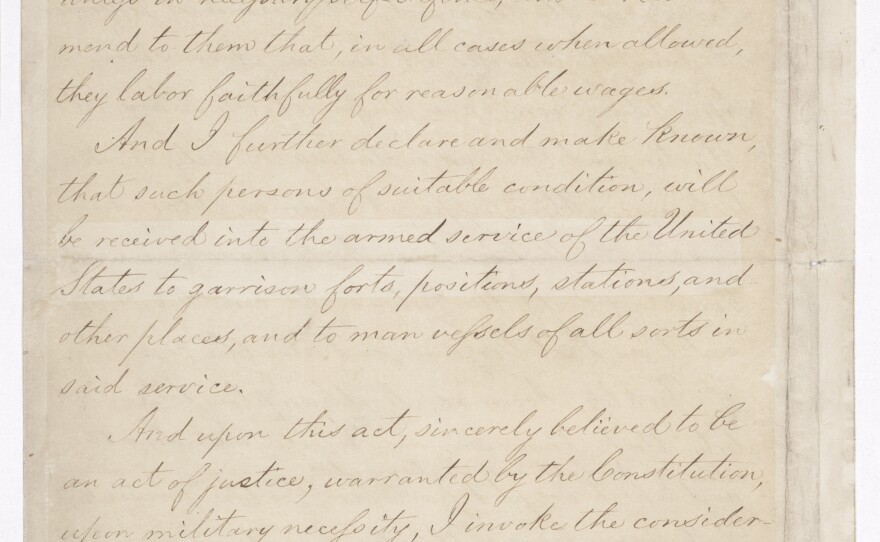 mend to them that, in all cases when allowed,
they labor faithfully for reasonable wages.
And I further declare and make known,
that such persons of suitable condition, will
be received into the armed service of the United
States to garrison forts, positions, stations, and
other places, and to man vessels of all sorts in
said service.
And upon this act, sincerely believed to be
an act of justice, warranted by the Constitution,
upon military necessity, I invoke the consider-